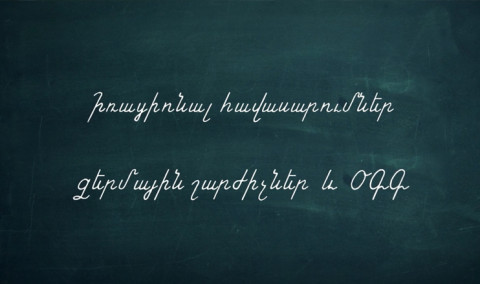 Իռացիոնալ հավասարումներ
ջերմային շարժիչներ և ՕԳԳ